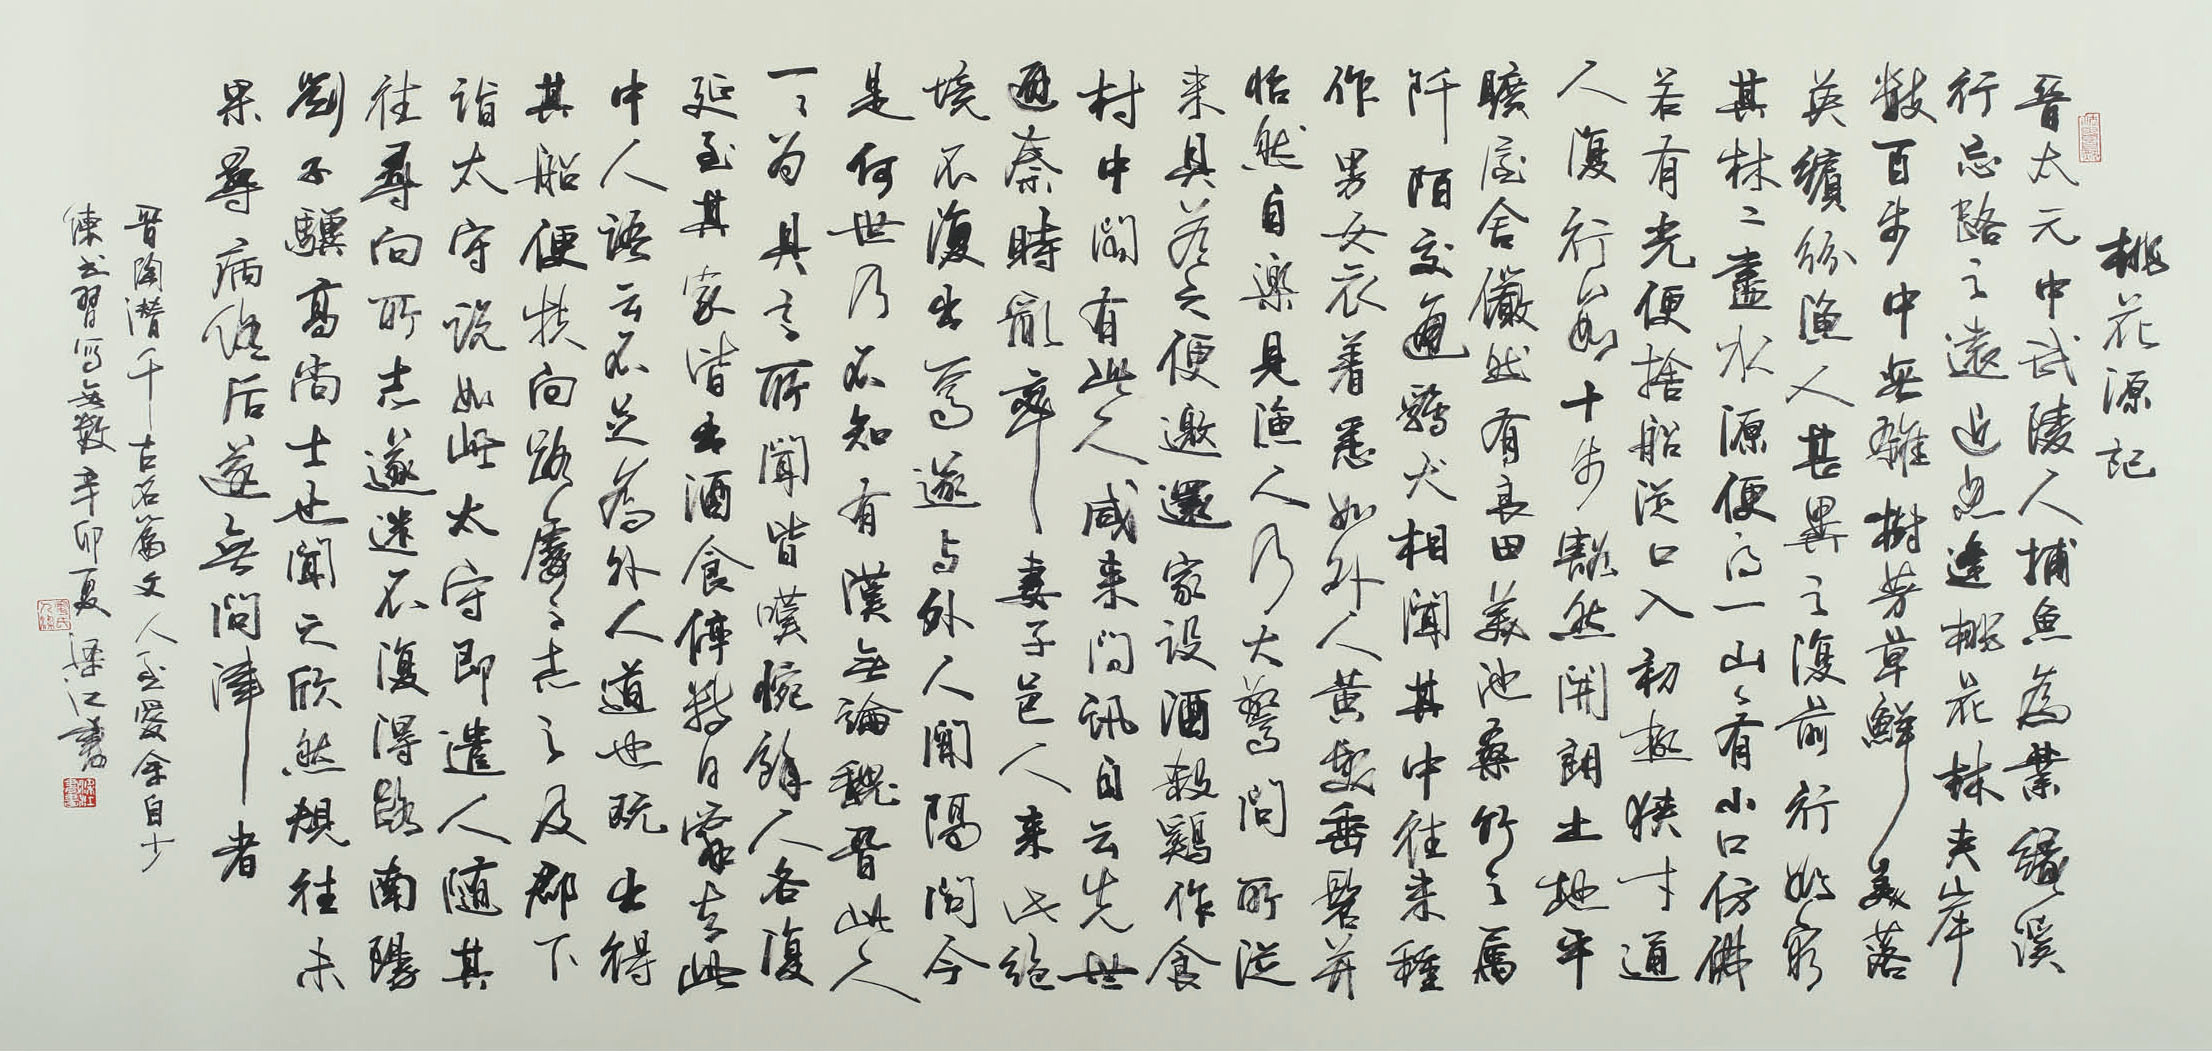 桃花源記
晉太元中武陵人捕魚為業緣溪
行忘路之遠近忽逢桃花林夾岸
數百步中無雜樹芳草鮮美落
英繽紛漁人甚異之復前行欲窮
其林〻盡水源便得一山〻有小口仿佛
若有光便捨船從口入初極狹才通
人復行數十步豁然開朗土地平
曠屋舍儼然有良田美池桑竹之屬
阡陌交通雞犬相聞其中往來種
作男女衣着悉如外人黃髮垂髫并
怡然自樂見漁人乃大驚問所從
來具答之便邀還家設酒殺鷄作食
村中聞有此人咸來問訊自云先世
避秦時亂率妻子邑人來此絕
境不復出焉遂与外人間隔問今
是何世乃不知有漢無論魏晉此人
一〻為具言所聞皆嘆惋餘人各復
延至其家皆出酒食停數日辭去此
中人語云不足為外人道也既出得
其船便扶向路處〻志之及郡下
詣太守說如此太守即遣人隨其
往尋向所志遂迷不復得路南陽
劉子驥高尚士也聞之欣然規往未
果尋病終后遂無問津者
晉陶潛千古名篇文人至愛余自少
練書習寫無數辛卯夏梁江書